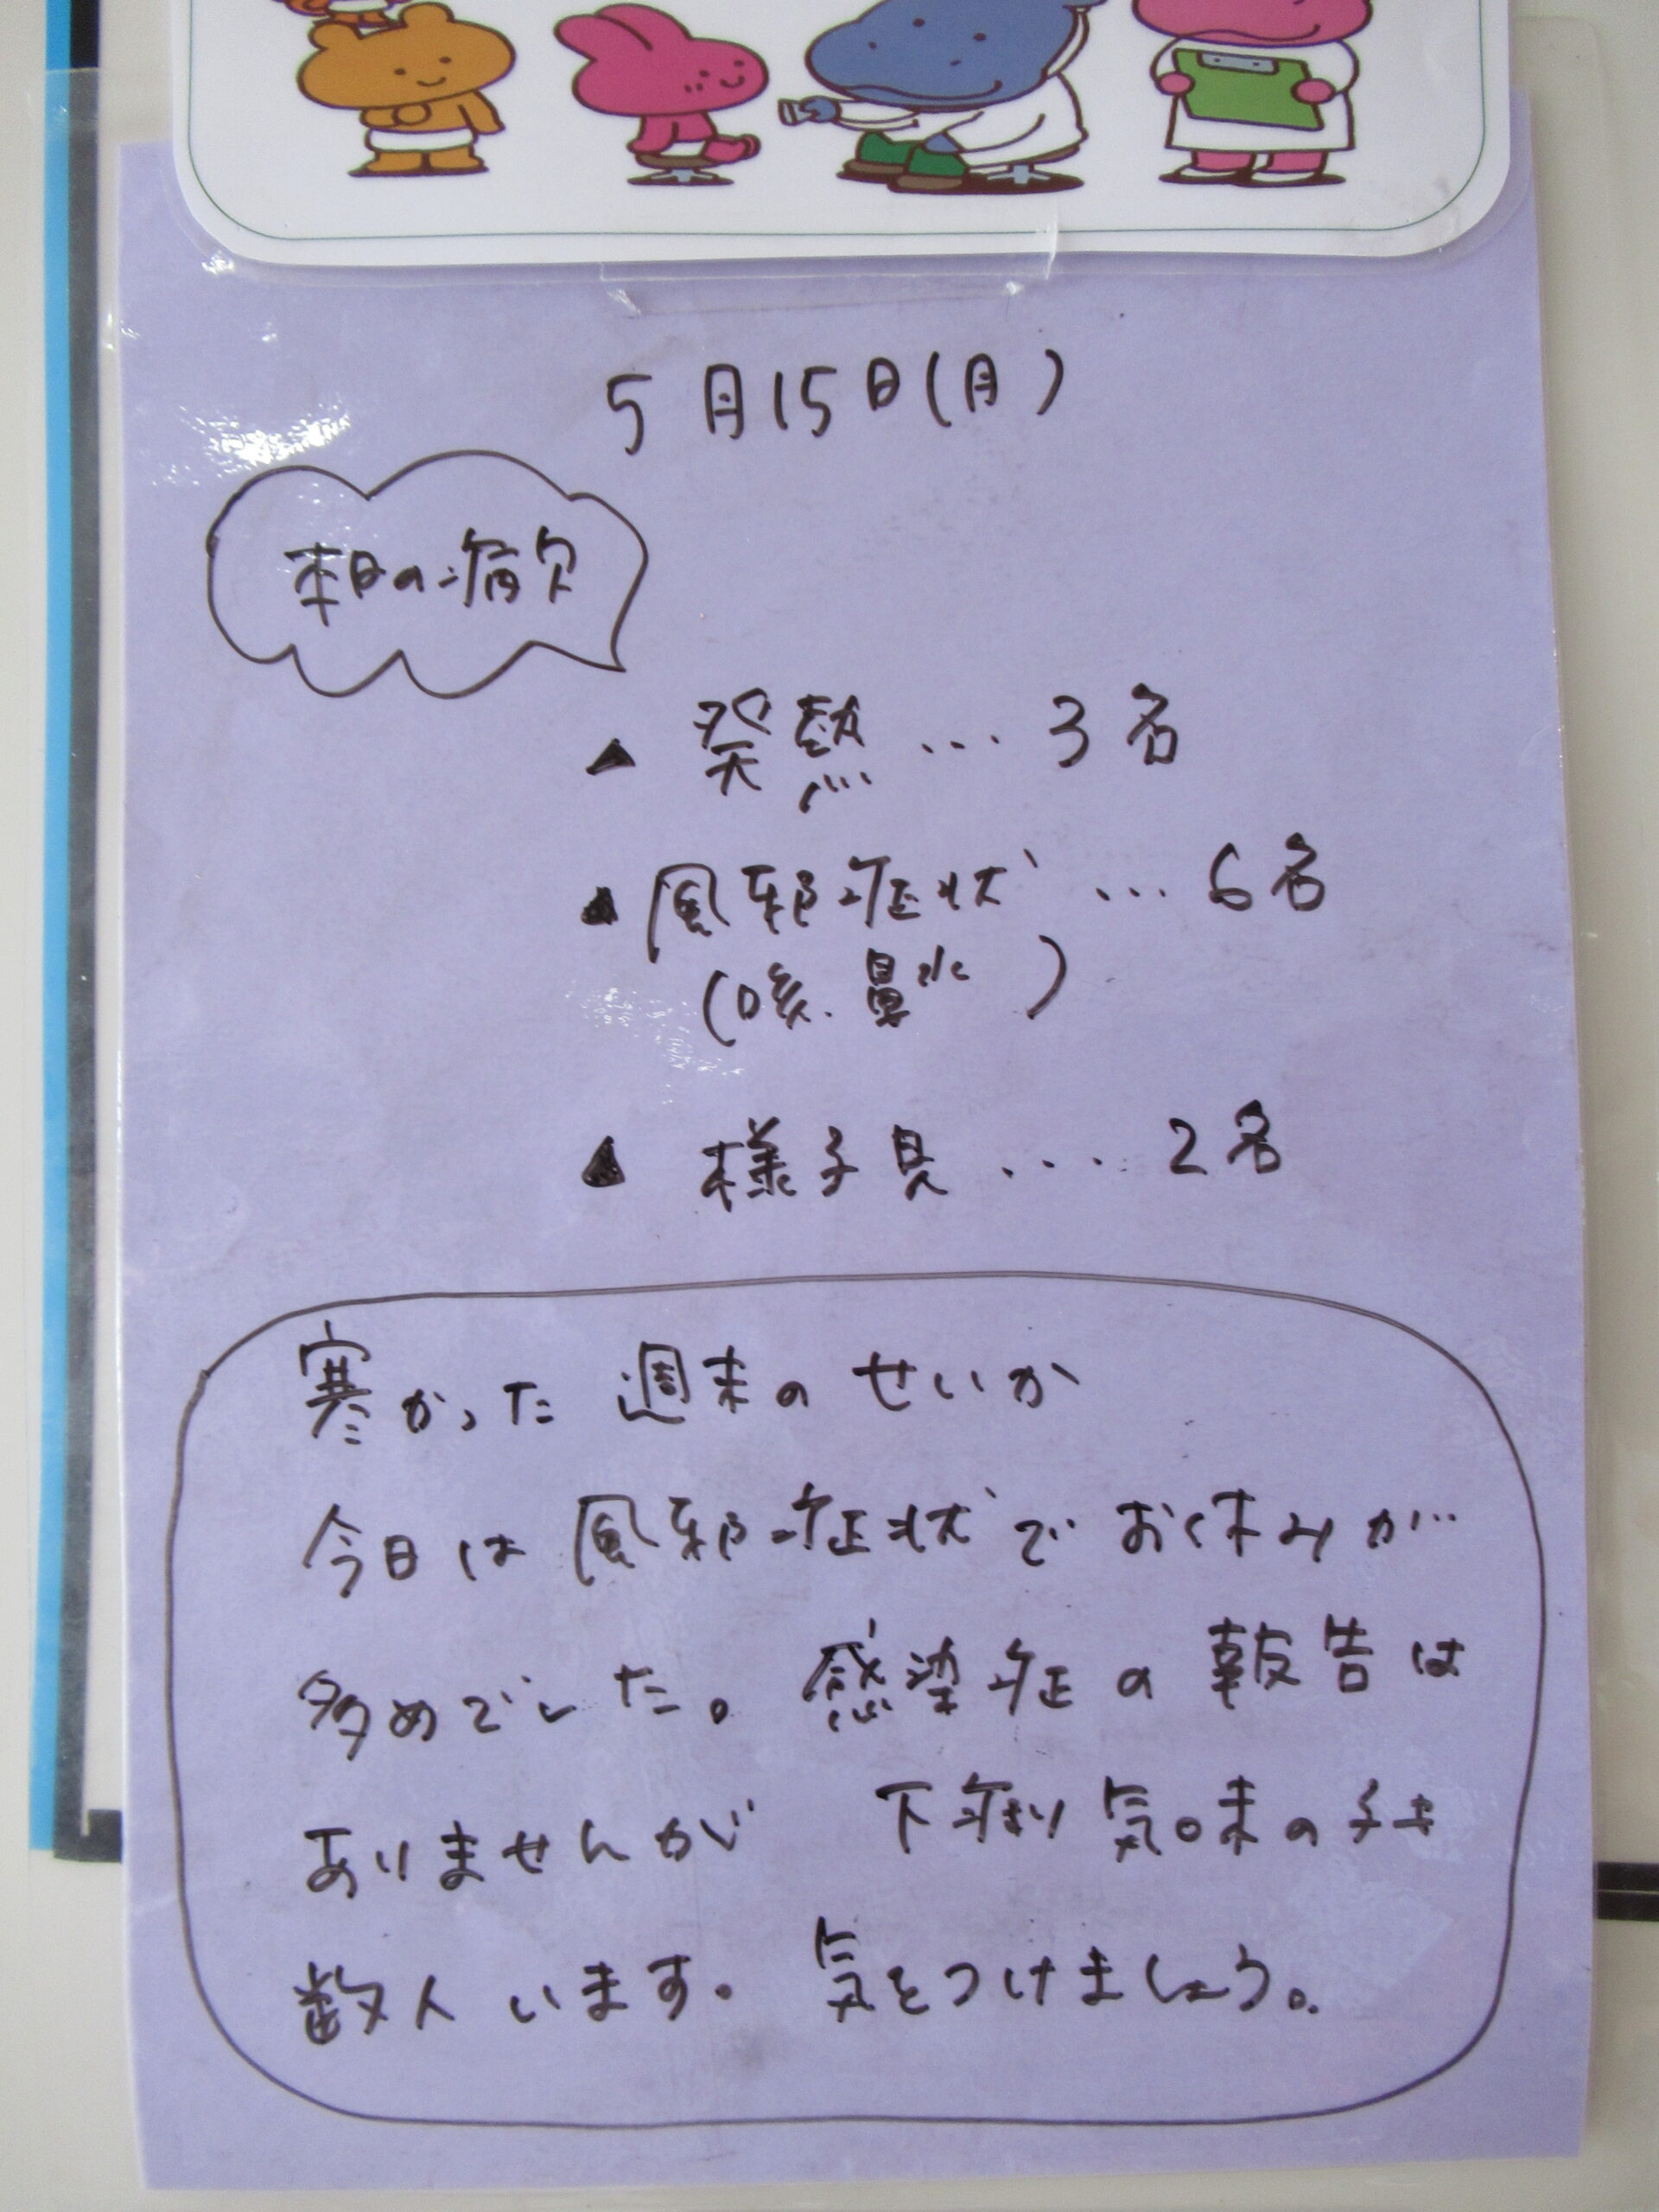 5月15日(月)
本日の病欠
▲ 発熱 ... 3名
▲ 風邪症状 ... 6名
(咳、鼻水)
▲ 様子見 .... 2名
寒かった週末のせいか
今日は風邪症状でお休みが
多めでした。感染症の報告は
ありませんが 下痢気味の子も
数人います。気をつけましょう。